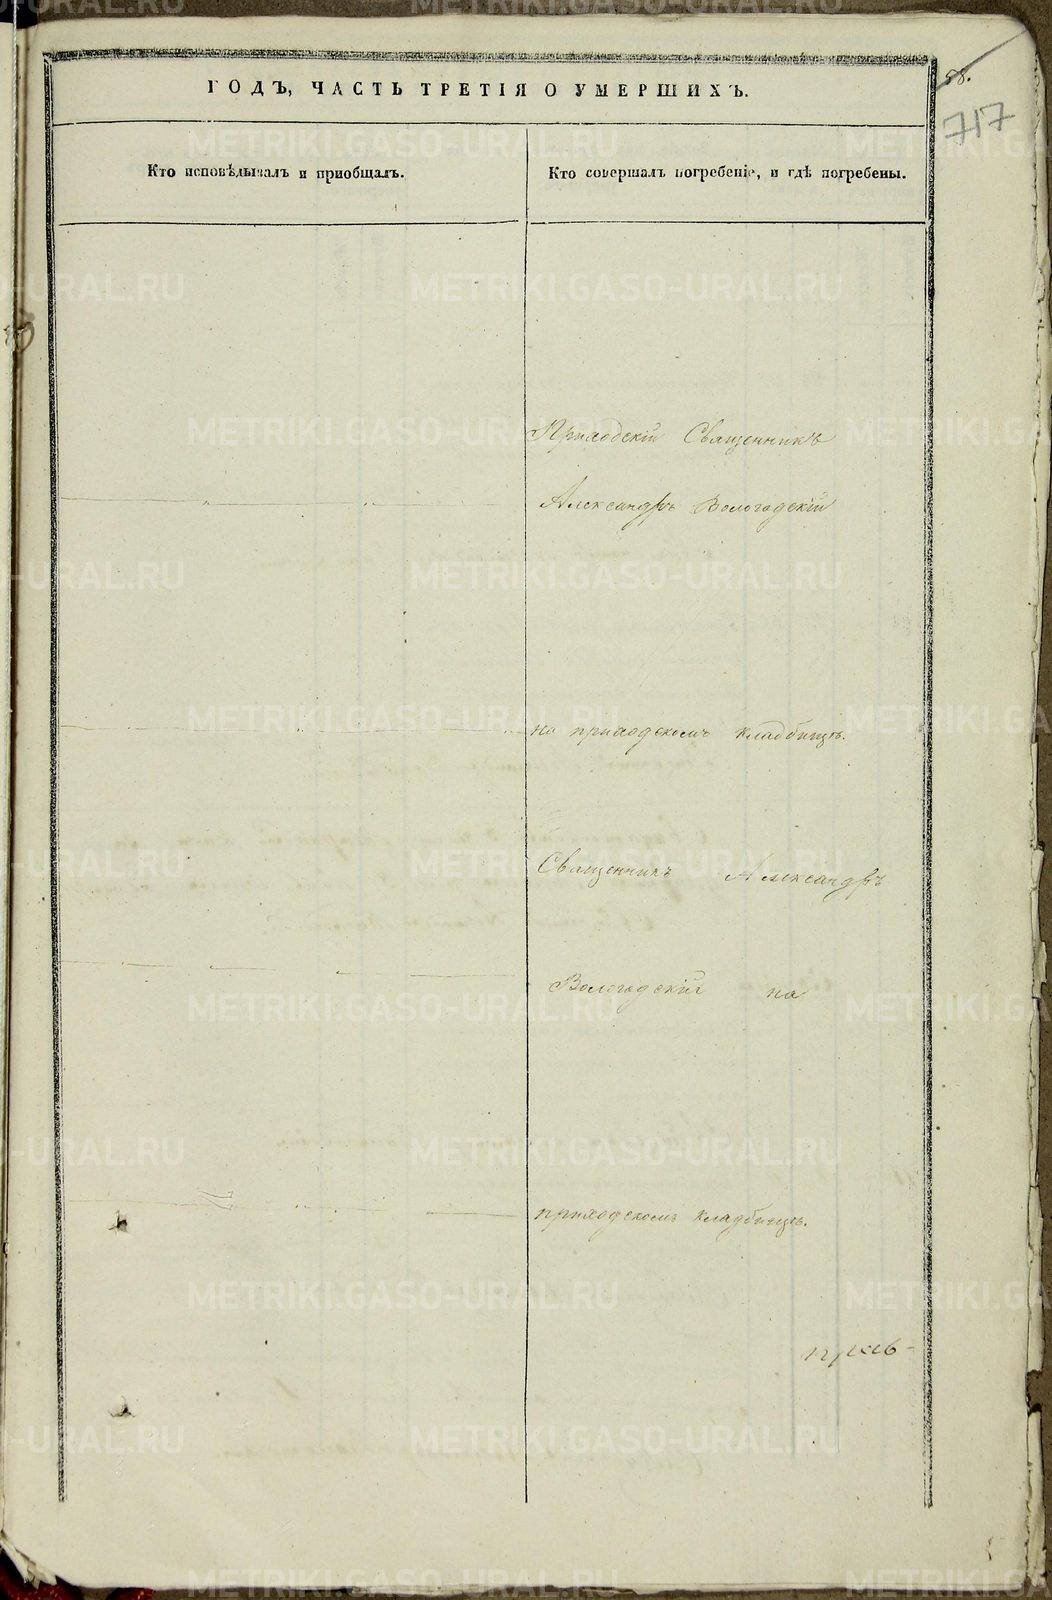 ГОДЪ, ЧАСТЬ ТРЕТІЯ О УМЕРШИХЪ.
717
Кто исповѣдывалъ и пріобщалъ.
Кто совершалъ погребеніе, и гдѣ погребены.
Приходскій Священникъ
Александръ Вологодскій
на приходскомъ кладбищѣ.
Священникъ Александръ
Вологодскій на
приходскомъ кладбищѣ.
METRIKI.GASO-URAL.RU